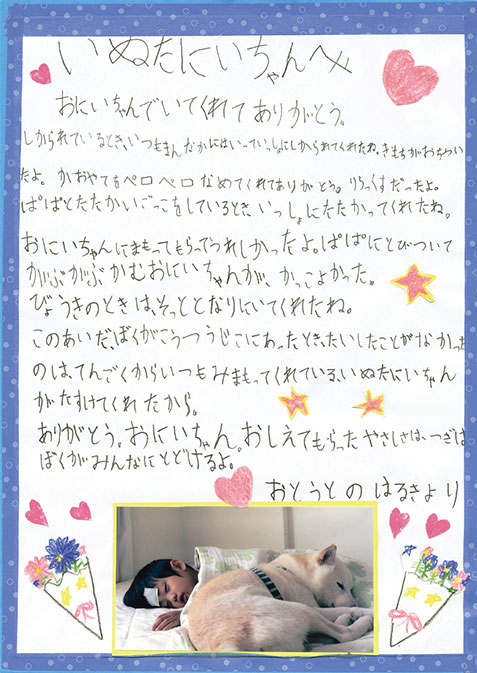 いぬたにいちゃんへ
おにいちゃんでいてくれてありがとう。
しかられているとき、いつもまんなかにはいっていっしょにしかられてくれたね。きもちがおちつい
たよ。かおやてをペロペロなめてくれてありがとう。りらっくすだったよ。
ぱぱとたたかいごっこをしているとき、いっしょにたたかってくれたね。
おにいちゃんにまもってもらってうれしかったよ。ぱぱにとびついて
がぶがぶかむおにいちゃんが、かっこよかった。
びょうきのときは、そっととなりにいてくれたね。
このあいだ、ぼくがこうつうじこにあったとき、たいしたことがなかった
のは、てんごくからいつもみまもってくれている、いぬたにいちゃん
がたすけてくれたから。
ありがとう。おにいちゃん。おしえてもらったやさしさは、つぎは
ぼくがみんなにとどけるよ。
おとうとのはるきより